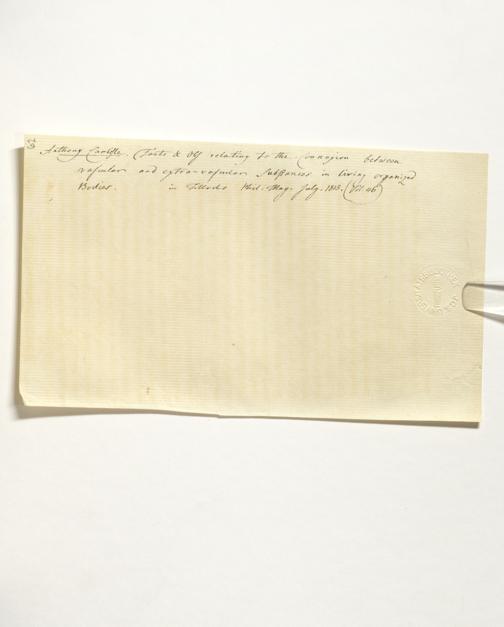 Anthony Carlisle. Facts & Obs relating to the Connexion between
vascular and extra-vascular Substances in living organized
Bodies. in Tillochs Phil: Mag: July. 1815. (Vol 46)